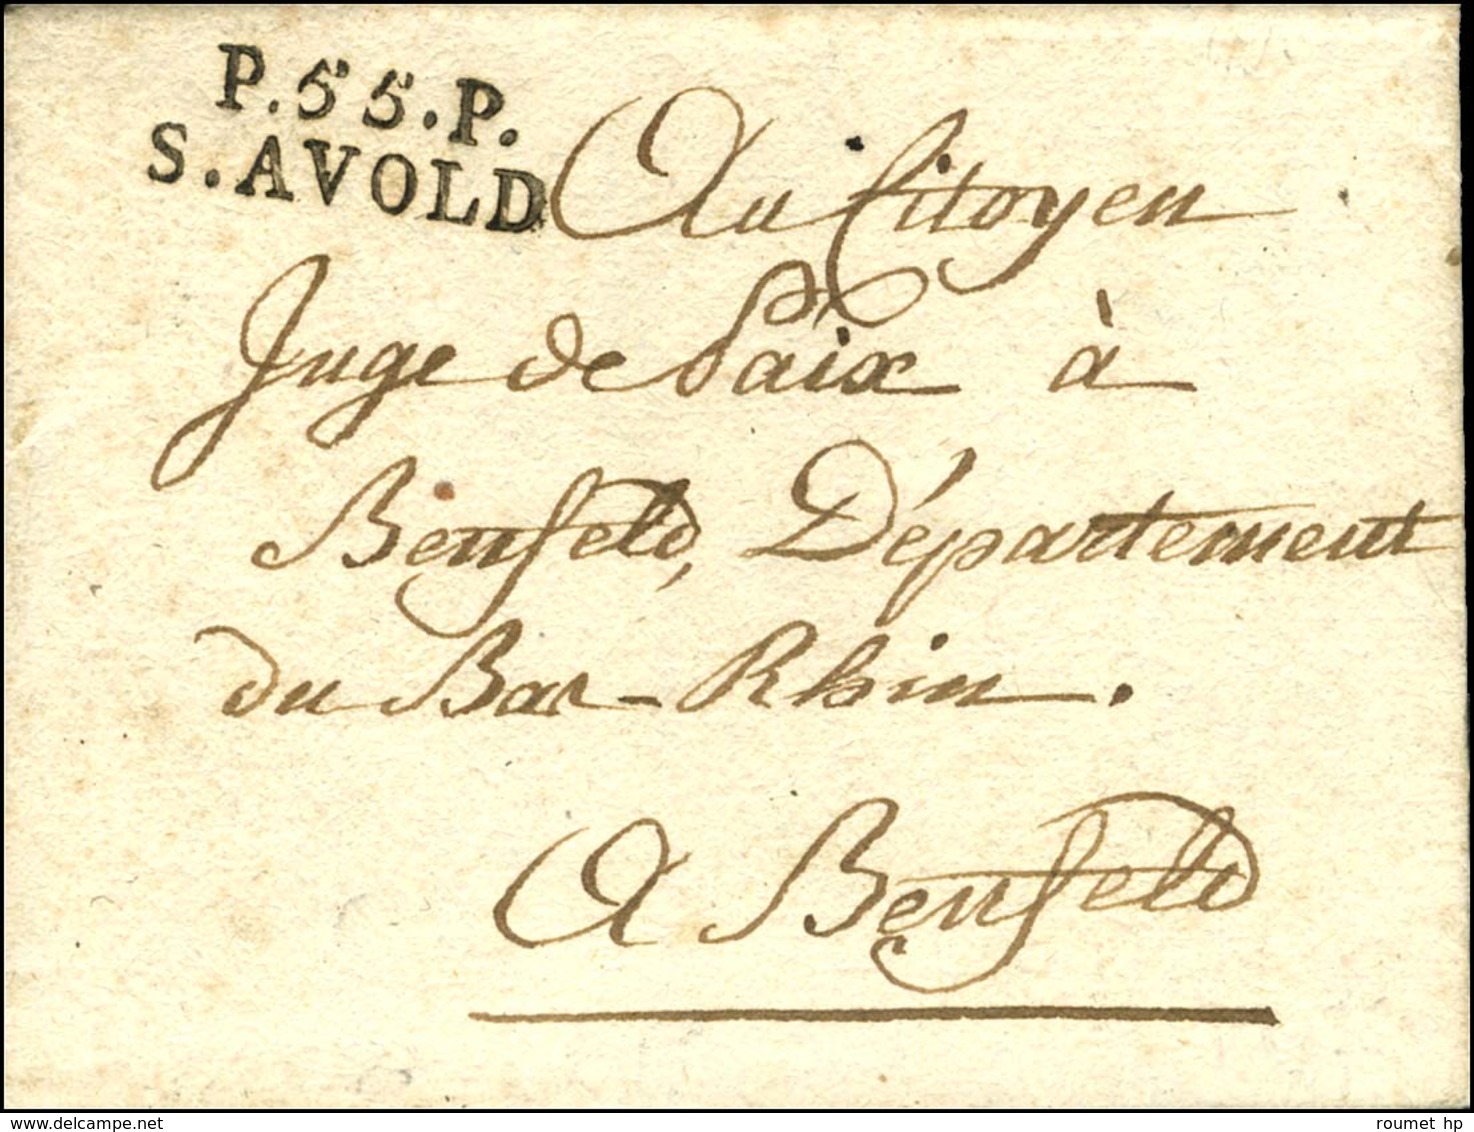 P.55.P.
S.AVOLD
Au Citoyen
Juge de Paix à
Benfeld, Département
du Bas-Rhin.
A Benfeld
delcampe.net
roumet hp